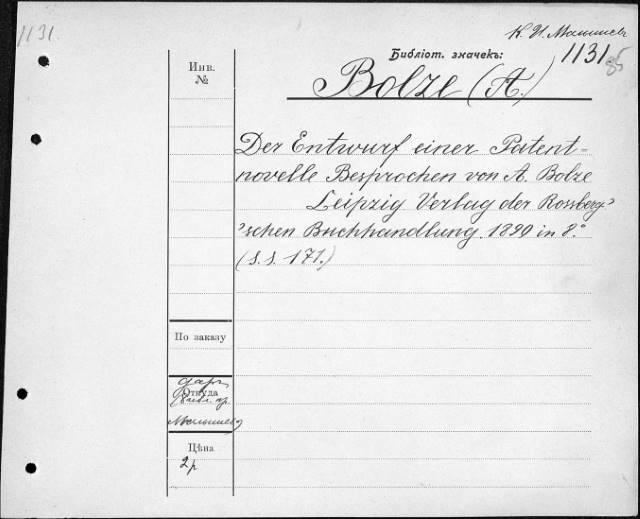 1131.
К. И. Малышевъ
Библіот. значекъ:
1131
85
Инв.
№
Bolze (A.)
Der Entwurf einer Patent=
novelle Besprochen von A. Bolze
Leipzig Verlag der Rossberg'
'schen Buchhandlung. 1890 in 8.°
(S.S. 171.)
По заказу
Откуда
даръ
Малышева
Цѣна
2 р